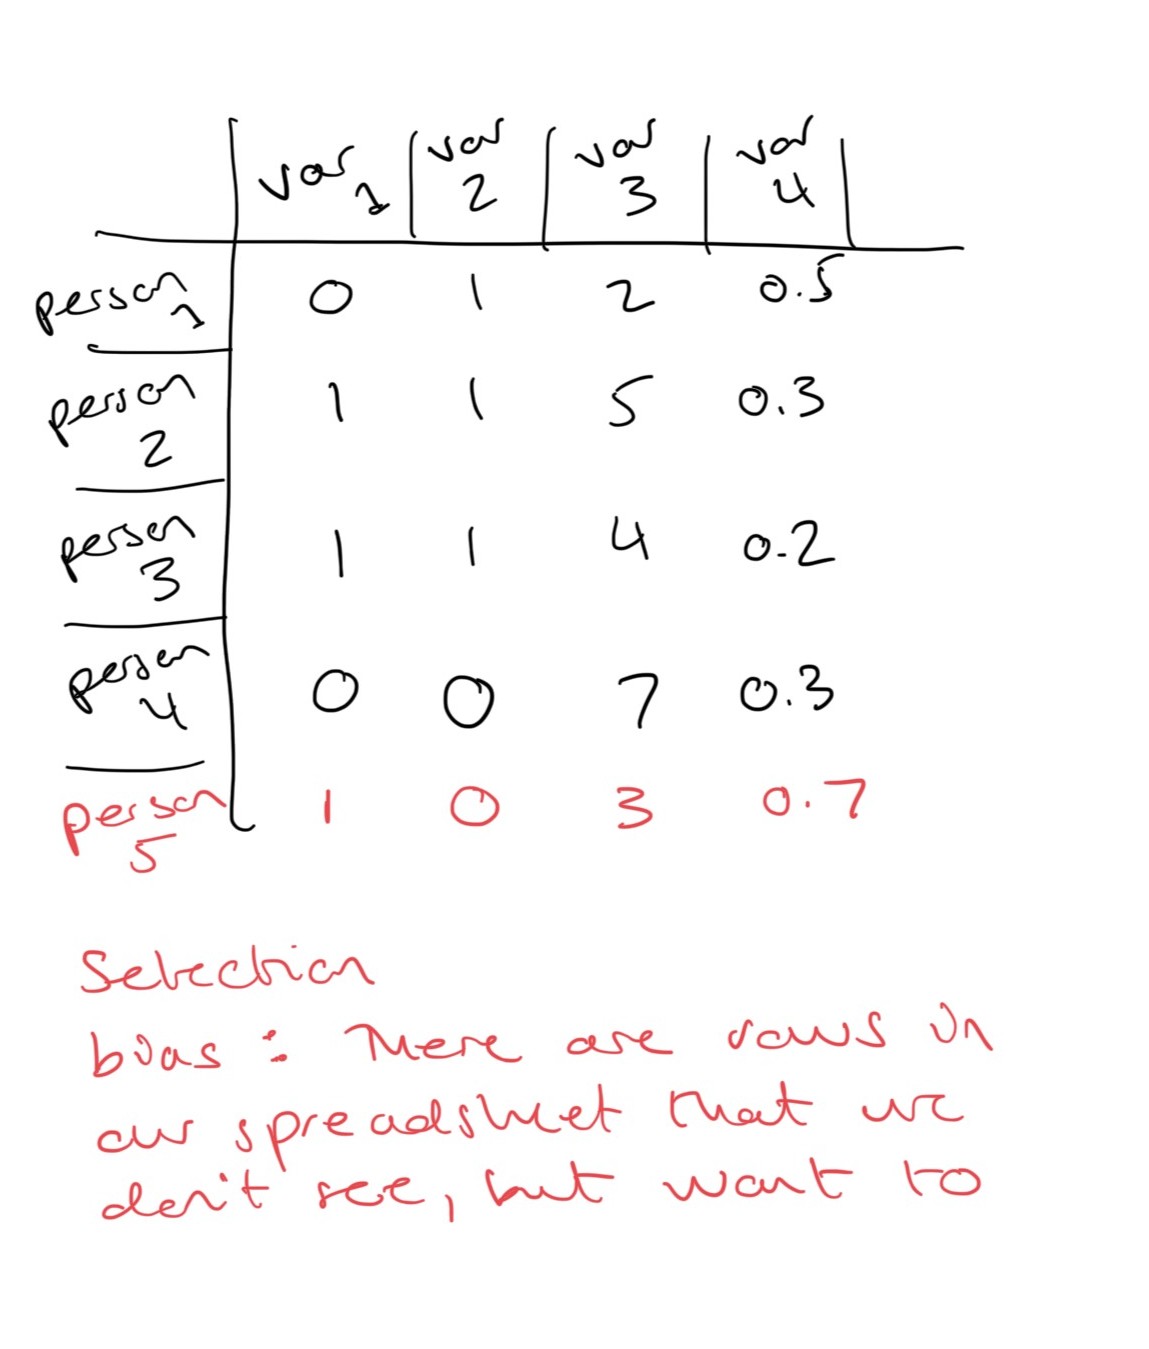 var 1 var 2 var 3 var 4
person 1 0 1 2 0.5
person 2 1 1 5 0.3
person 3 1 1 4 0.2
person 4 0 0 7 0.3
person 5 1 0 3 0.7
Selection
bias : There are rows in
our spreadsheet that we
don't see, but want to